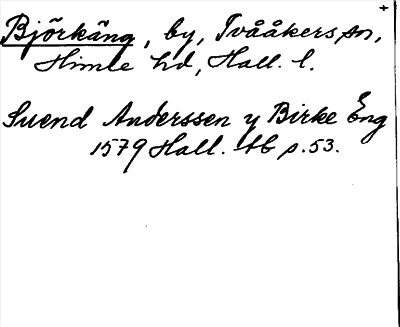 +
Björkäng, by, Tvååkers sn,
Himle hd, Hall. l.
Suend Anderssen y Birke Eng
1579 Hall. Ab p. 53.